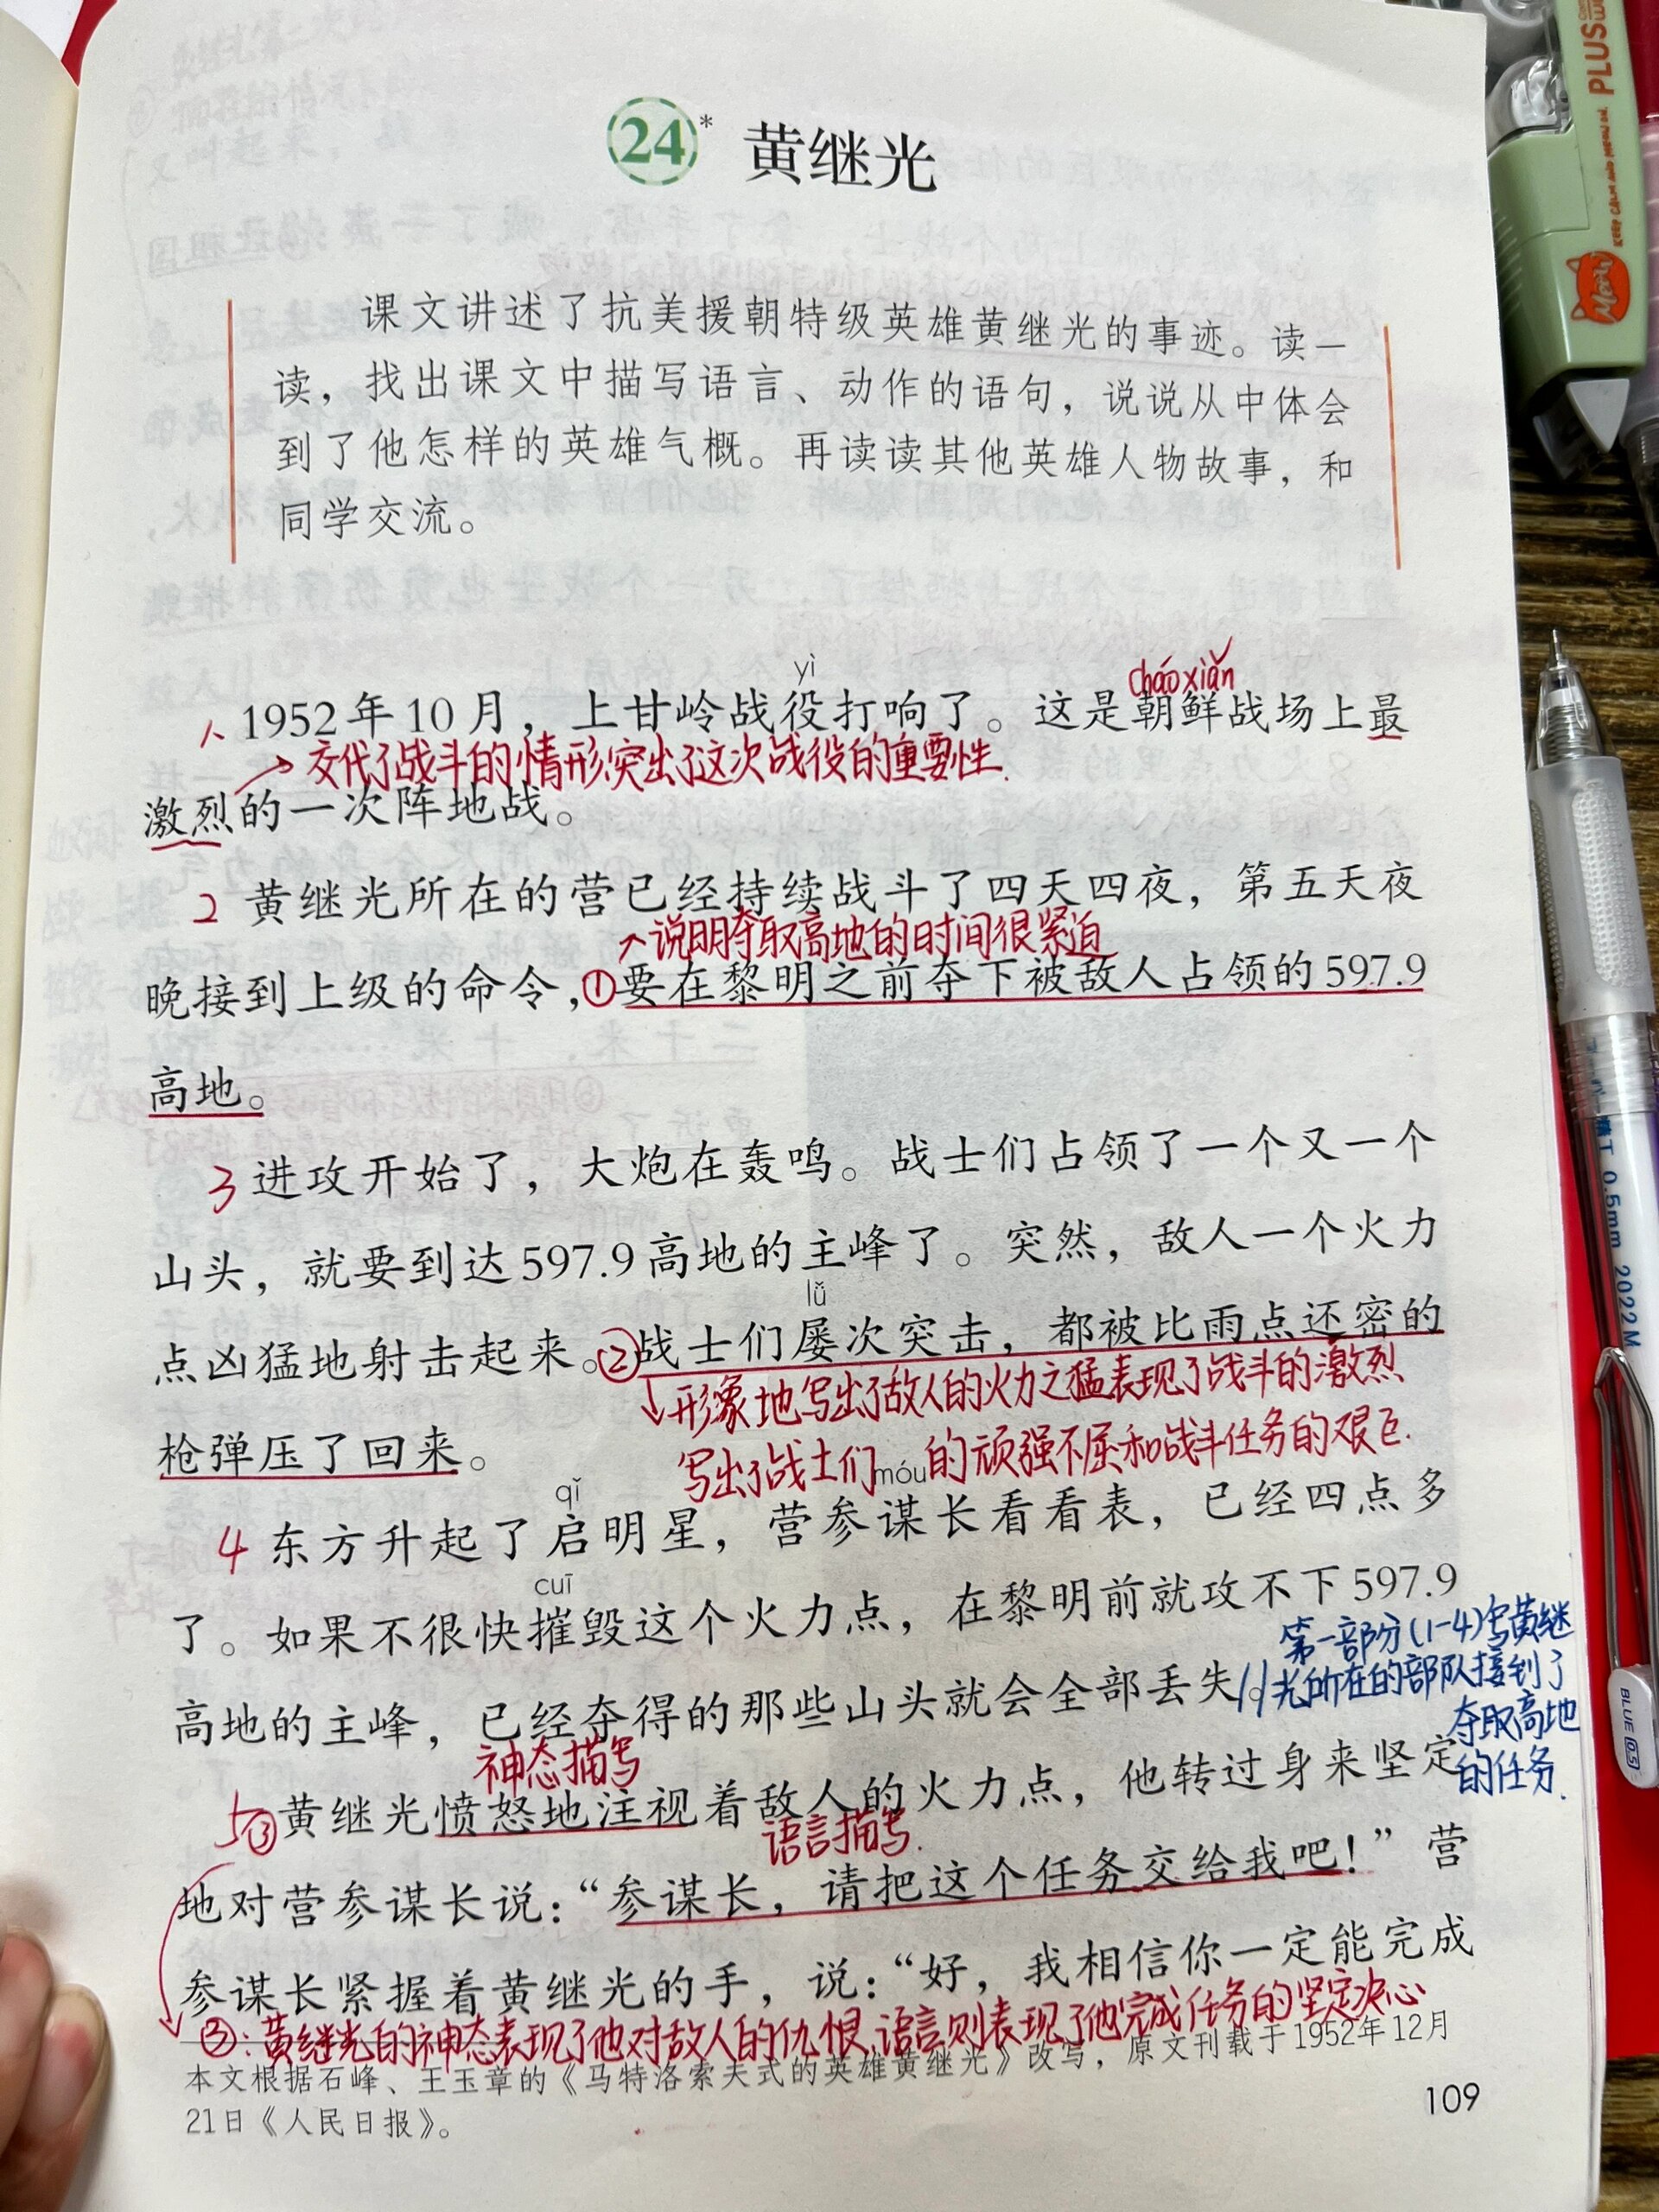 24* 黄继光
课文讲述了抗美援朝特级英雄黄继光的事迹。读一
读，找出课文中描写语言、动作的语句，说说从中体会
到了他怎样的英雄气概。再读读其他英雄人物故事，和
同学交流。
yì
cháo xiǎn
1 1952年10月，上甘岭战役打响了。这是朝鲜战场上最
交代了战斗的情形，突出了这次战役的重要性.
激烈的一次阵地战。
2 黄继光所在的营已经持续战斗了四天四夜，第五天夜
说明夺取高地的时间很紧迫
晚接到上级的命令，①要在黎明之前夺下被敌人占领的597.9
高地。
3 进攻开始了，大炮在轰鸣。战士们占领了一个又一个
山头，就要到达597.9高地的主峰了。突然，敌人一个火力
lǚ
点凶猛地射击起来。②战士们屡次突击，都被比雨点还密的
形象地写出了敌人的火力之猛表现了战斗的激烈
枪弹压了回来。
写出了战士们的顽强不屈和战斗任务的艰巨.
qǐ móu
4 东方升起了启明星，营参谋长看看表，已经四点多
cuī
了。如果不很快摧毁这个火力点，在黎明前就攻不下597.9
高地的主峰，已经夺得的那些山头就会全部丢失。
第一部分(1-4)写黄继
光所在的部队接到了
夺取高地
的任务.
神态描写
5 ③黄继光愤怒地注视着敌人的火力点，他转过身来坚定
语言描写.
地对营参谋长说：“参谋长，请把这个任务交给我吧！”营
参谋长紧握着黄继光的手，说：“好，我相信你一定能完成
③：黄继光的神态表现了他对敌人的仇恨，语言则表现了他完成任务的坚定决心
本文根据石峰、王玉章的《马特洛索夫式的英雄黄继光》改写，原文刊载于1952年12月
21日《人民日报》。
109
PLUS
KEEP CALM AND MEOW ON.
Meow
0.5mm 2022 M
BLUE 0.5